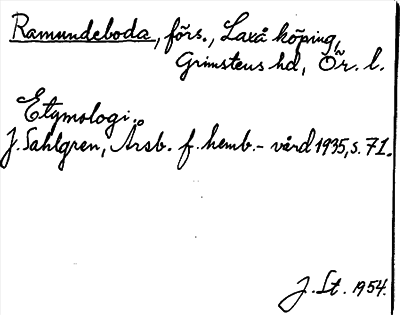 Ramundeboda, förs., Laxå köping,
Grimstens hd, Ör. l.
Etymologi:
J. Sahlgren, Årsb. f. hemb.-vård 1935, s. 71.
J. Lt. 1954.